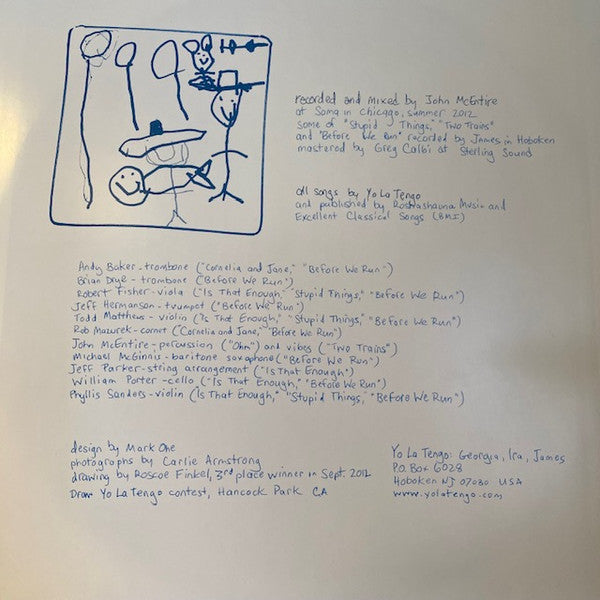 recorded and mixed by John McEntire
at Soma in Chicago, summer 2012
some of "Stupid Things," "Two Trains"
and "Before We Run" recorded by James in Hoboken
mastered by Greg Calbi at Sterling Sound
all songs by Yo La Tengo
and published by Roshashauna Music and
Excellent Classical Songs (BMI)
Andy Baker - trombone ("Cornelia and Jane," "Before We Run")
Brian Drye - trombone ("Before We Run")
Robert Fisher - viola ("Is That Enough," "Stupid Things," "Before We Run")
Jeff Hermanson - trumpet ("Before We Run")
Todd Matthews - violin ("Is That Enough," "Stupid Things," "Before We Run")
Rob Mazurek - cornet ("Cornelia and Jane," "Before We Run")
John McEntire - percussion ("Ohm") and vibes ("Two Trains")
Michael McGinnis - baritone saxophone ("Before We Run")
Jeff Parker - string arrangement ("Is That Enough")
William Porter - cello ("Is That Enough," "Before We Run")
Phyllis Sanders - violin (Is That Enough," "Stupid Things," "Before We Run")
design by Mark Ohe
photographs by Carlie Armstrong
drawing by Roscoe Finkel, 3rd place winner in Sept. 2012
Draw Yo La Tengo contest, Hancock Park CA
Yo La Tengo: Georgia, Ira, James
P.O. Box 6028
Hoboken NJ 07030 USA
www.yolatengo.com